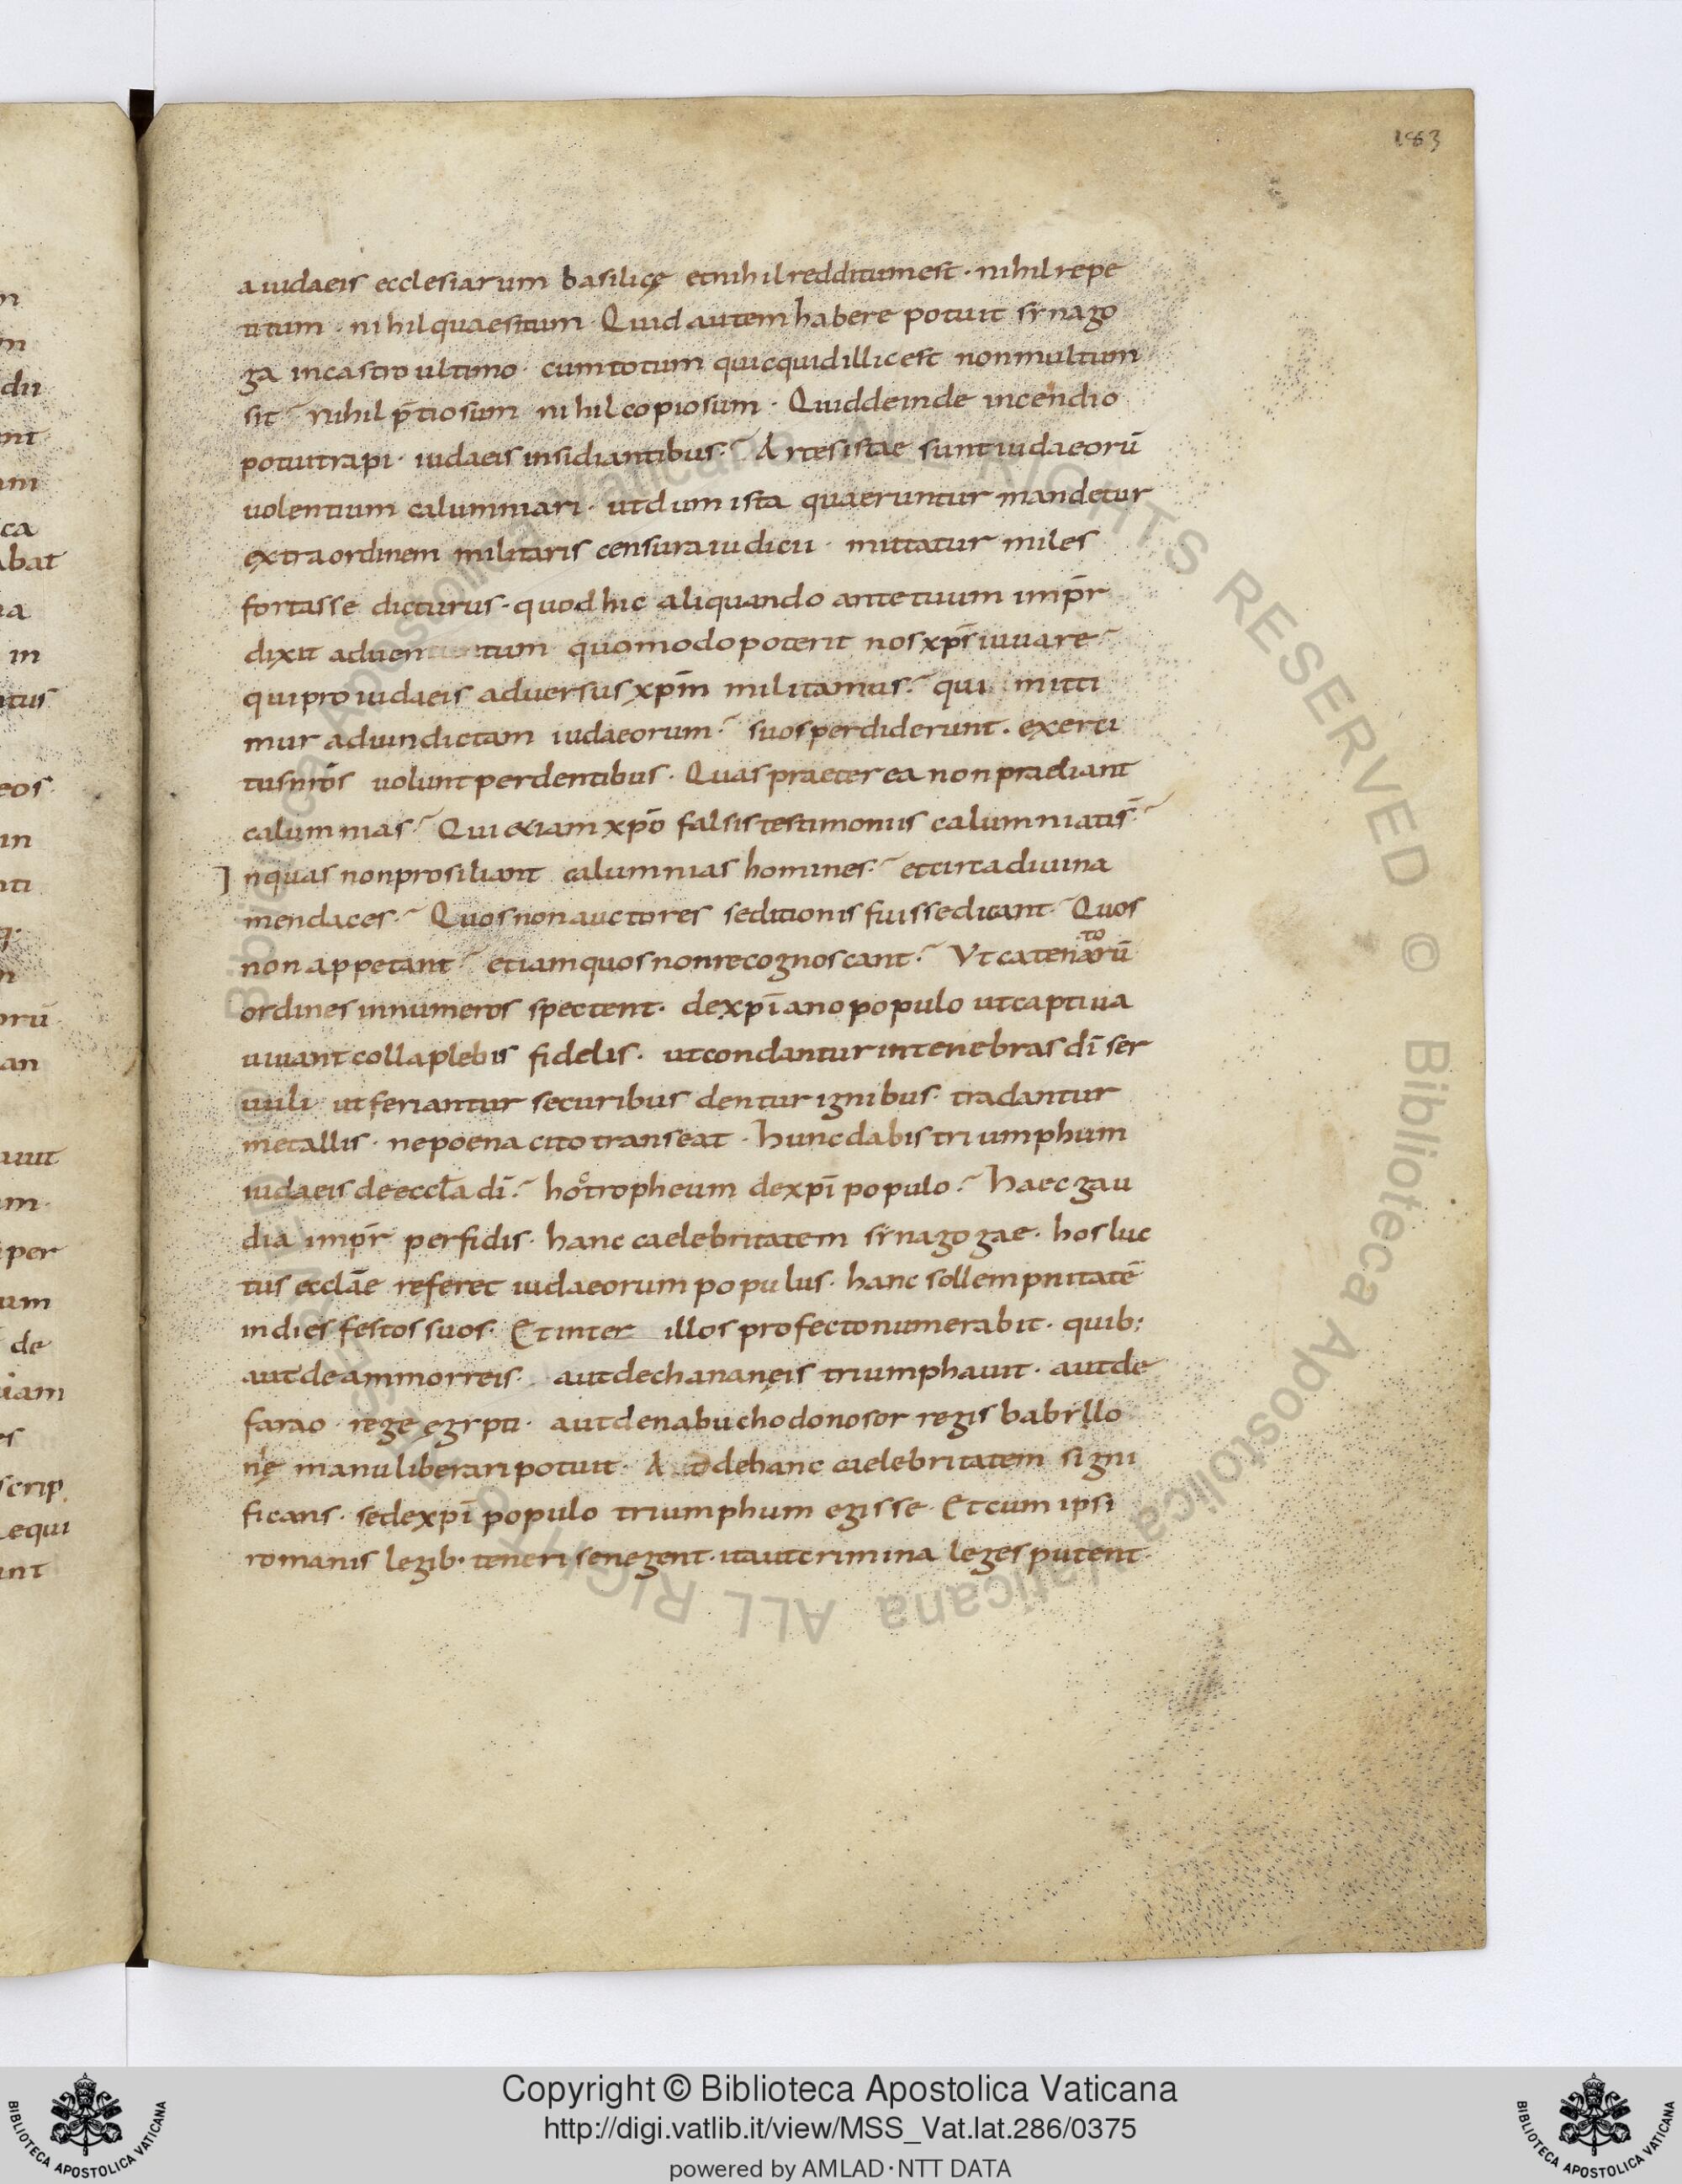 183
a iudaeis ecclesiarum basilicę et nihil redditum est · nihil repe
titum · nihil quaesitum · Quid autem habere potuit synago
ga in castro ultimo · cum totum quicquid illic est non multum
sit nihil p̄tiosum nihil copiosum · Quid deinde incendio
potuit rapi · iudaeis insidiantibus? Artes istae sunt iudaeorū
uolentium calumniari · ut dum ista quaeruntur mandetur
extraordinem militaris censura iudicii · mittatur miles
fortasse dicturus · quod hic aliquando ante tuum imp̄r
dixit aduen tum quomodo poterit nos xp̄s iuuare
qui pro iudaeis aduersus xp̄m militamus? qui mitti
mur ad uindictam iudaeorum? suos perdiderunt · exerci
tus nr̄os uolunt perdentibus · Quas praeterea non prodiant
calumnias? Qui etiam xp̄o falsis testimoniis calumniatis̄?
In quas non prosiliant calumnias homines? et circa diuina
mendaces? Quos non auctores seditionis fuisse dicant? Quos
non appetant? etiam quos non recognoscant? Vt catenatorū
ordines innumeros spectent · de xp̄iano populo ut captiua
uiuant colla plebis fidelis · ut condantur in tenebras dī ser
uuli ut feriantur securibus dentur ignibus · tradantur
metallis · ne poena cito transeat · hunc dabis triumphum
iudaeis de eccl̄a dī? hoc tropheum de xp̄i populo? haec gau
dia imp̄r perfidis · hanc caelebritatem synagogae · hos luc
tus ecclāe referet iudaeorum populus · hanc sollempnitatē
in dies festos suos · Et inter illos profecto numerabit · quib;
aut de ammorreis · aut de chananeis triumphauit · aut de
farao rege egypti · aut de nabuchodonosor regis babyllo
nę manu liberari potuit · A d dehanc caelebritatem signi
ficans · se de xp̄i populo triumphum egisse · Et cum ipsi
romanis legib· teneri se negent · ita ut crimina leges putent ·
Copyright © Biblioteca Apostolica Vaticana
http://digi.vatlib.it/view/MSS_Vat.lat.286/0375
powered by AMLAD·NTT DATA
BIBLIOTECA APOSTOLICA VATICANA
BIBLIOTECA APOSTOLICA VATICANA